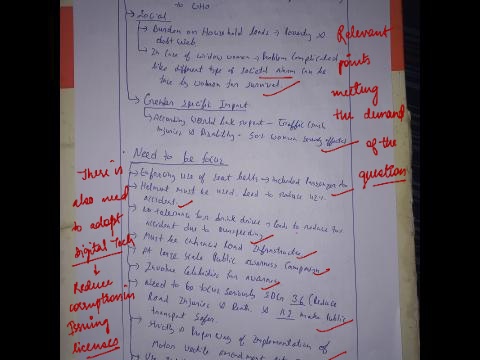 to WHO
Social
Burden on Household loads → Poverty &
debt web
In case of widow women → Problem complicated
like different type of societal can be
take by women for survival
Gender specific Impact
According World bank report - Traffic Crash
Injuries & Disability - 50% women effected
Need to be focus
Enforcing use of Seat belts → included Passenger
Helmet must be used. Lead to reduce 42%
accident.
No tolerance for drink drive → leads to reduce
accident due to overspeeding
Must be enhanced Road Infrastructure
At large scale Public awareness Campaign
Involve Celebrities for awareness
Need to be focus seriously SDG 3.6 (Reduce
Road Injuries & Death & 11.2 make Public
transport safer.
Strictly & Proper way of Implementation of
Motor vehicle amendment
Relevant
points
meeting
the demand
of the
question
There is
also need
to adopt
Digital Tech
↓
Reduce
corruption in
Issuing
licenses